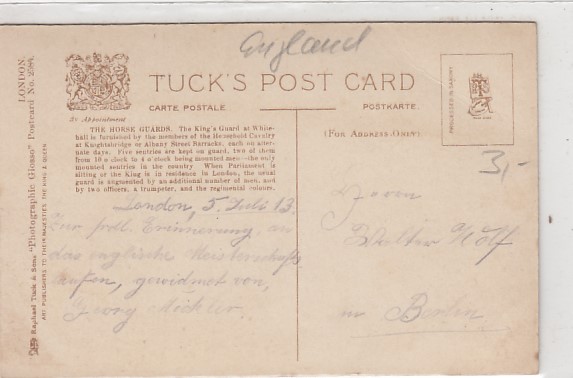 England
LONDON.
Raphael Tuck & Sons' "Photographic Glosso" Postcard No.
ART PUBLISHERS TO THEIR MAJESTIES THE KING & QUEEN
By Appointment
TUCK'S POST CARD
CARTE POSTALE.
POSTKARTE.
(FOR ADDRESS ONLY)
THE HORSE GUARDS. The King's Guard at White-
hall is furnished by the members of the Household Cavalry
at Knightsbridge or Albany Street Barracks, each on alter-
nate days. Five sentries are kept on guard, two of them
from 10 o'clock to 4 o'clock being mounted men—the only
mounted sentries in the country. When Parliament is
sitting or the King is in residence in London, the usual
guard is augmented by an additional number of men, and
by two officers, a trumpeter, and the regimental colours.
3,-
London, 5. Juli 13.
Zur frdl. Erinnerung, an
das englische Meisterschafts
gewidmet von,
Georg
Herrn
Walter Wolf
in Berlin